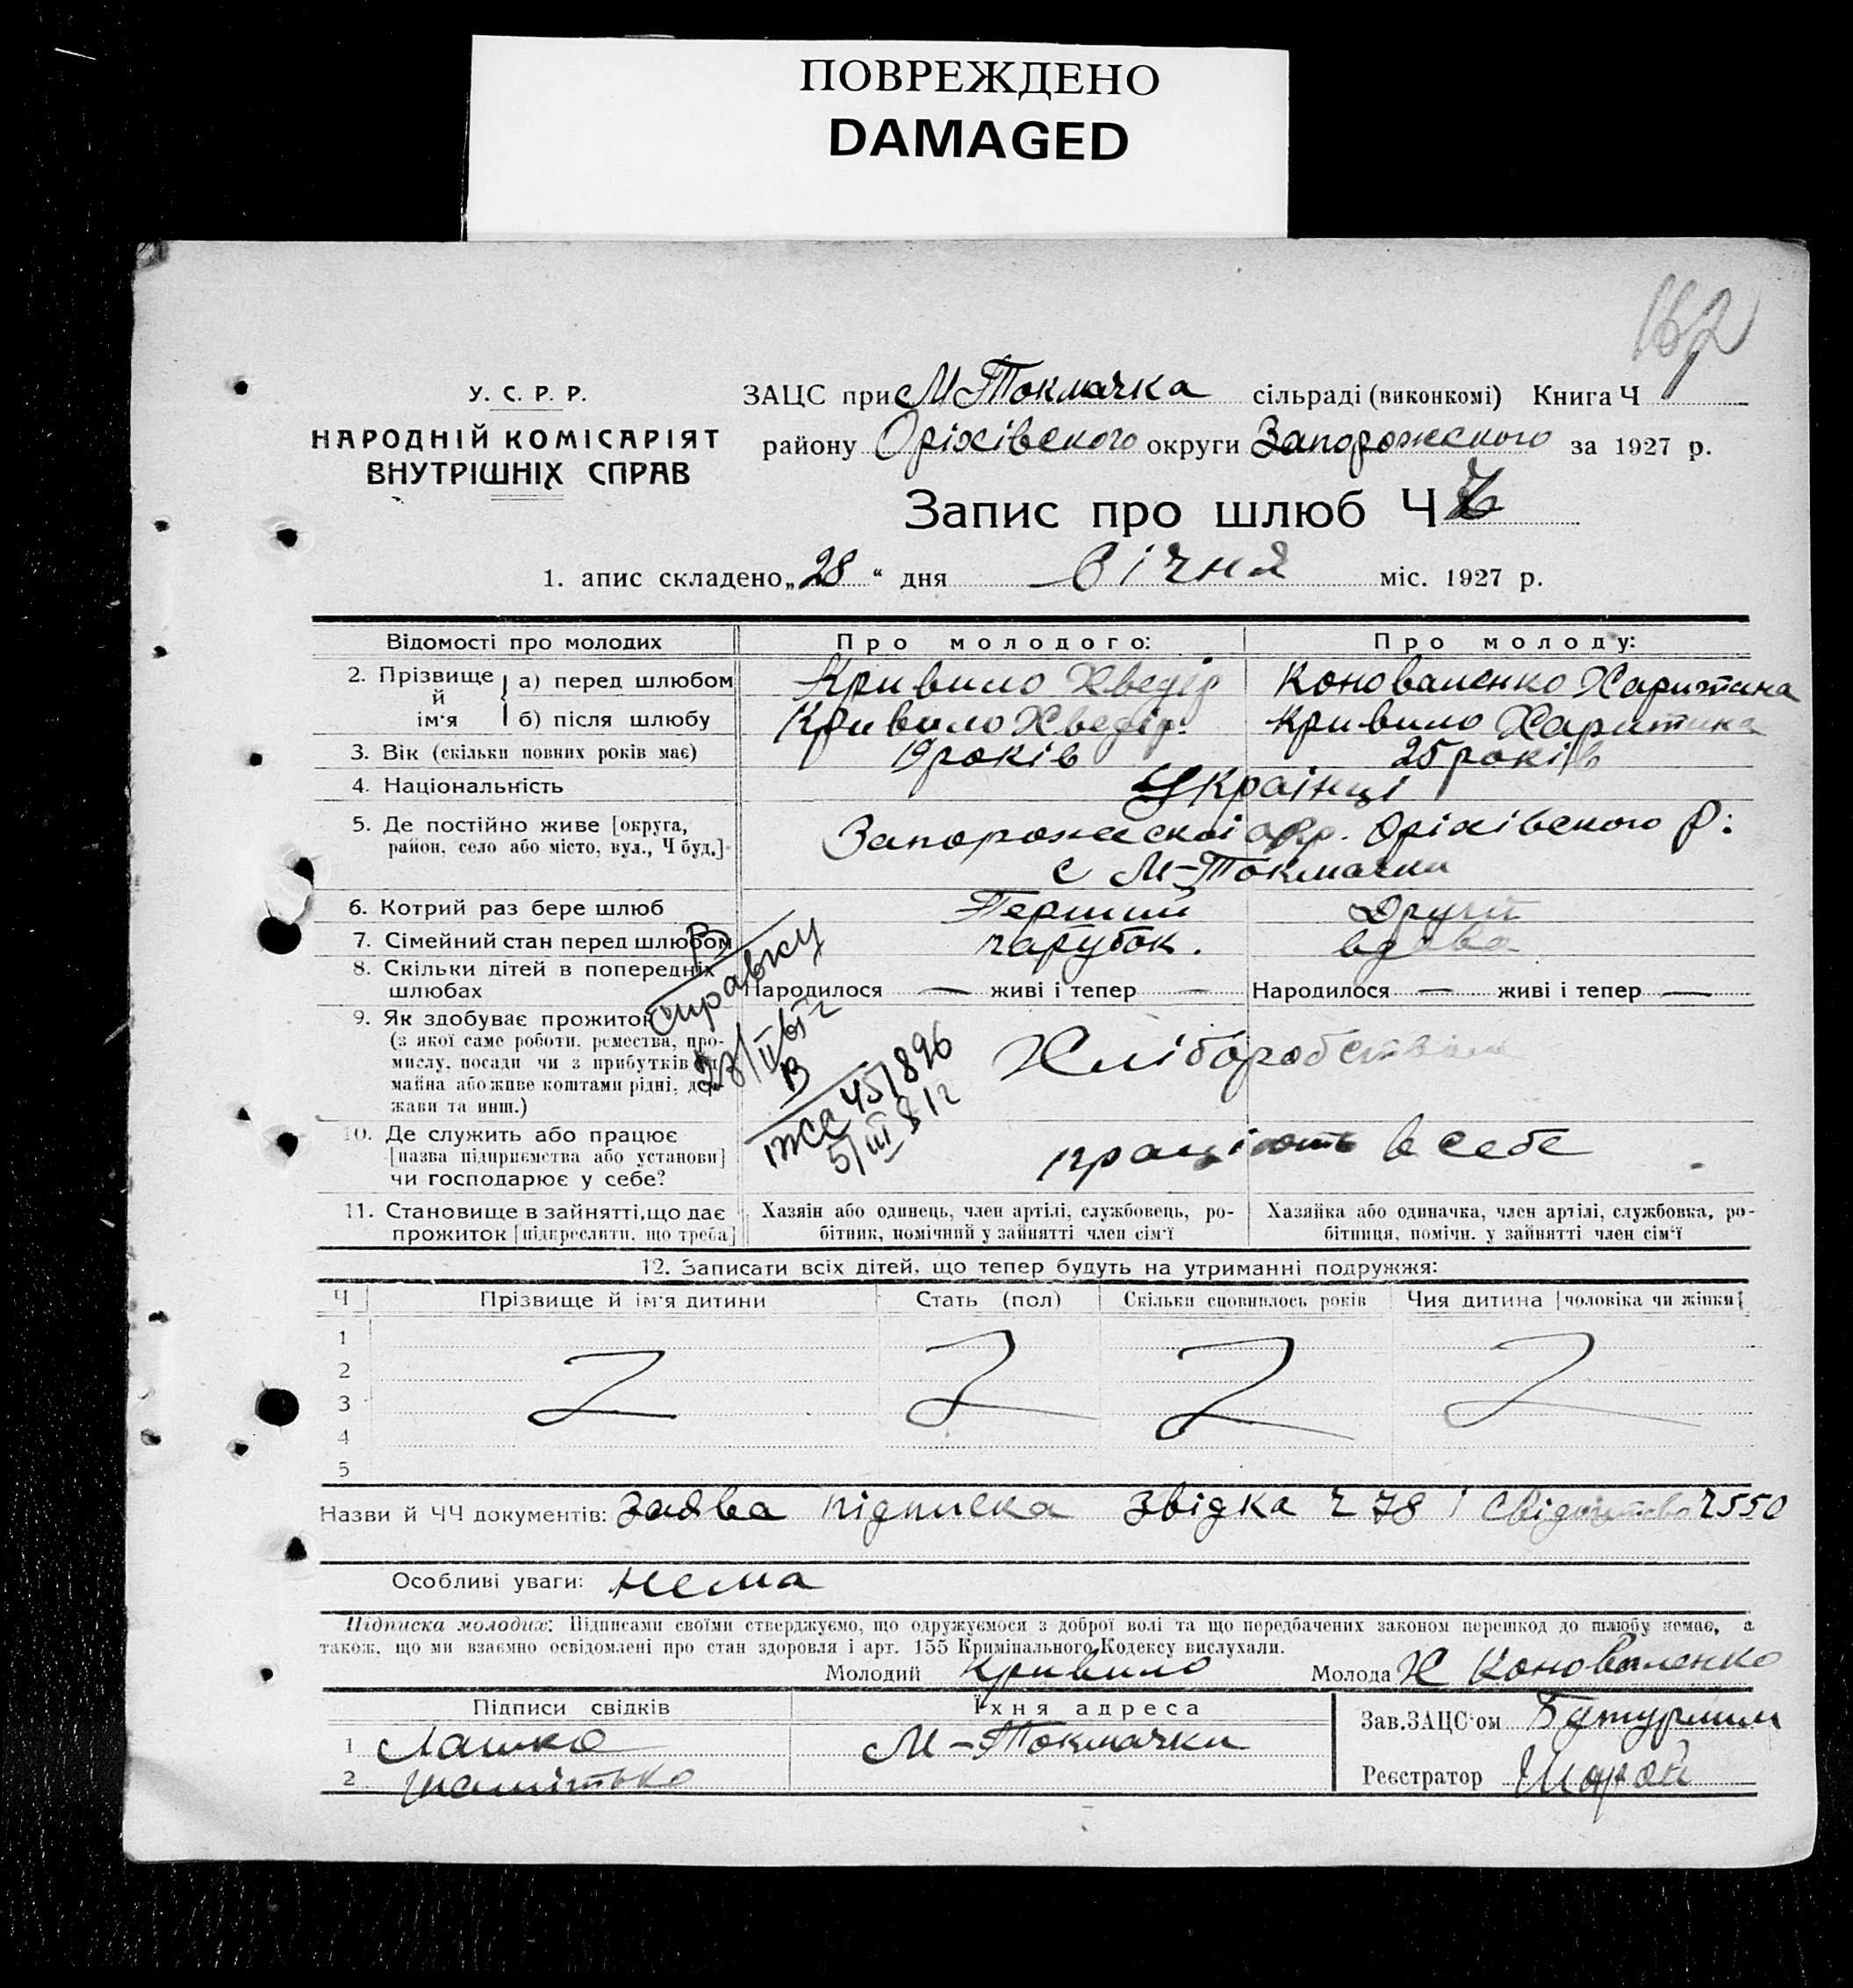 ПОВРЕЖДЕНО
DAMAGED
162
У. С. Р. Р.
НАРОДНІЙ КОМІСАРІЯТ
ВНУТРІШНІХ СПРАВ
ЗАЦС при М-Токмачка сільраді (виконкомі) Книга Ч
району Оріхівського округи Запорожського за 1927 р.
Запис про шлюб Ч
1. апис складено „28“ дня січня міс. 1927 р.
Відомості про молодих Про молодого: Про молоду:
2. Прізвище й ім'я а) перед шлюбом Кривило Хведір Коноваленко Харитина
б) після шлюбу Кривило Хведір. Кривило Харитина
3. Вік (скільки повних років має) 19 років 25 років
4. Національність Українці
5. Де постійно живе [округа, Запорожськоі окр. Оріхівського р:
район, село або місто, вул., Ч буд.] с М-Токмачки
6. Котрий раз бере шлюб Перший Другий
7. Сімейний стан перед шлюбом парубок. вдова
8. Скільки дітей в попередніх
шлюбах Народилося — живі і тепер — Народилося — живі і тепер —
9. Як здобуває прожиток
(з якої саме роботи, ремества, про-
мислу, посади чи з прибутків
майна або живе коштами рідні, дер-
жави та инш.) Хліборобством
В
справку
23/II 61 г
В
45/896
5/III 81 г
10. Де служить або працює
[назва підприємства або установи]
чи господарює у себе? працюють в себе
11. Становище в зайнятті, що дає Хазяін або одинець, член артілі, службовець, ро- Хазяйка або одиначка, член артілі, службовка, ро-
прожиток [підкреслити, що треба] бітник, помічний у зайнятті член сім'ї бітниця, помічн. у зайнятті член сім'ї
12. Записати всіх дітей, що тепер будуть на утриманні подружжя:
Ч Прізвище й ім'я дитини Стать (пол) Скільки сповнилось років Чия дитина [чоловіка чи жінки]
1
2
3
4
5
Назви й ЧЧ документів: Заява підписка звідка Ч 78 і свідоцтво Ч 550
Особливі уваги: нема
Підписка молодих: Підписами своїми стверджуємо, що одружуємося з доброї волі та що передбачених законом перешкод до шлюбу немає, а
також, що ми взаємно освідомлені про стан здоровля і арт. 155 Кримінального Кодексу вислухали.
Молодий Кривило Молода Х Коноваленко
Підписи свідків Їхня адреса
1 Лашко М-Токмачки
2
Зав.ЗАЦС'ом
Реєстратор